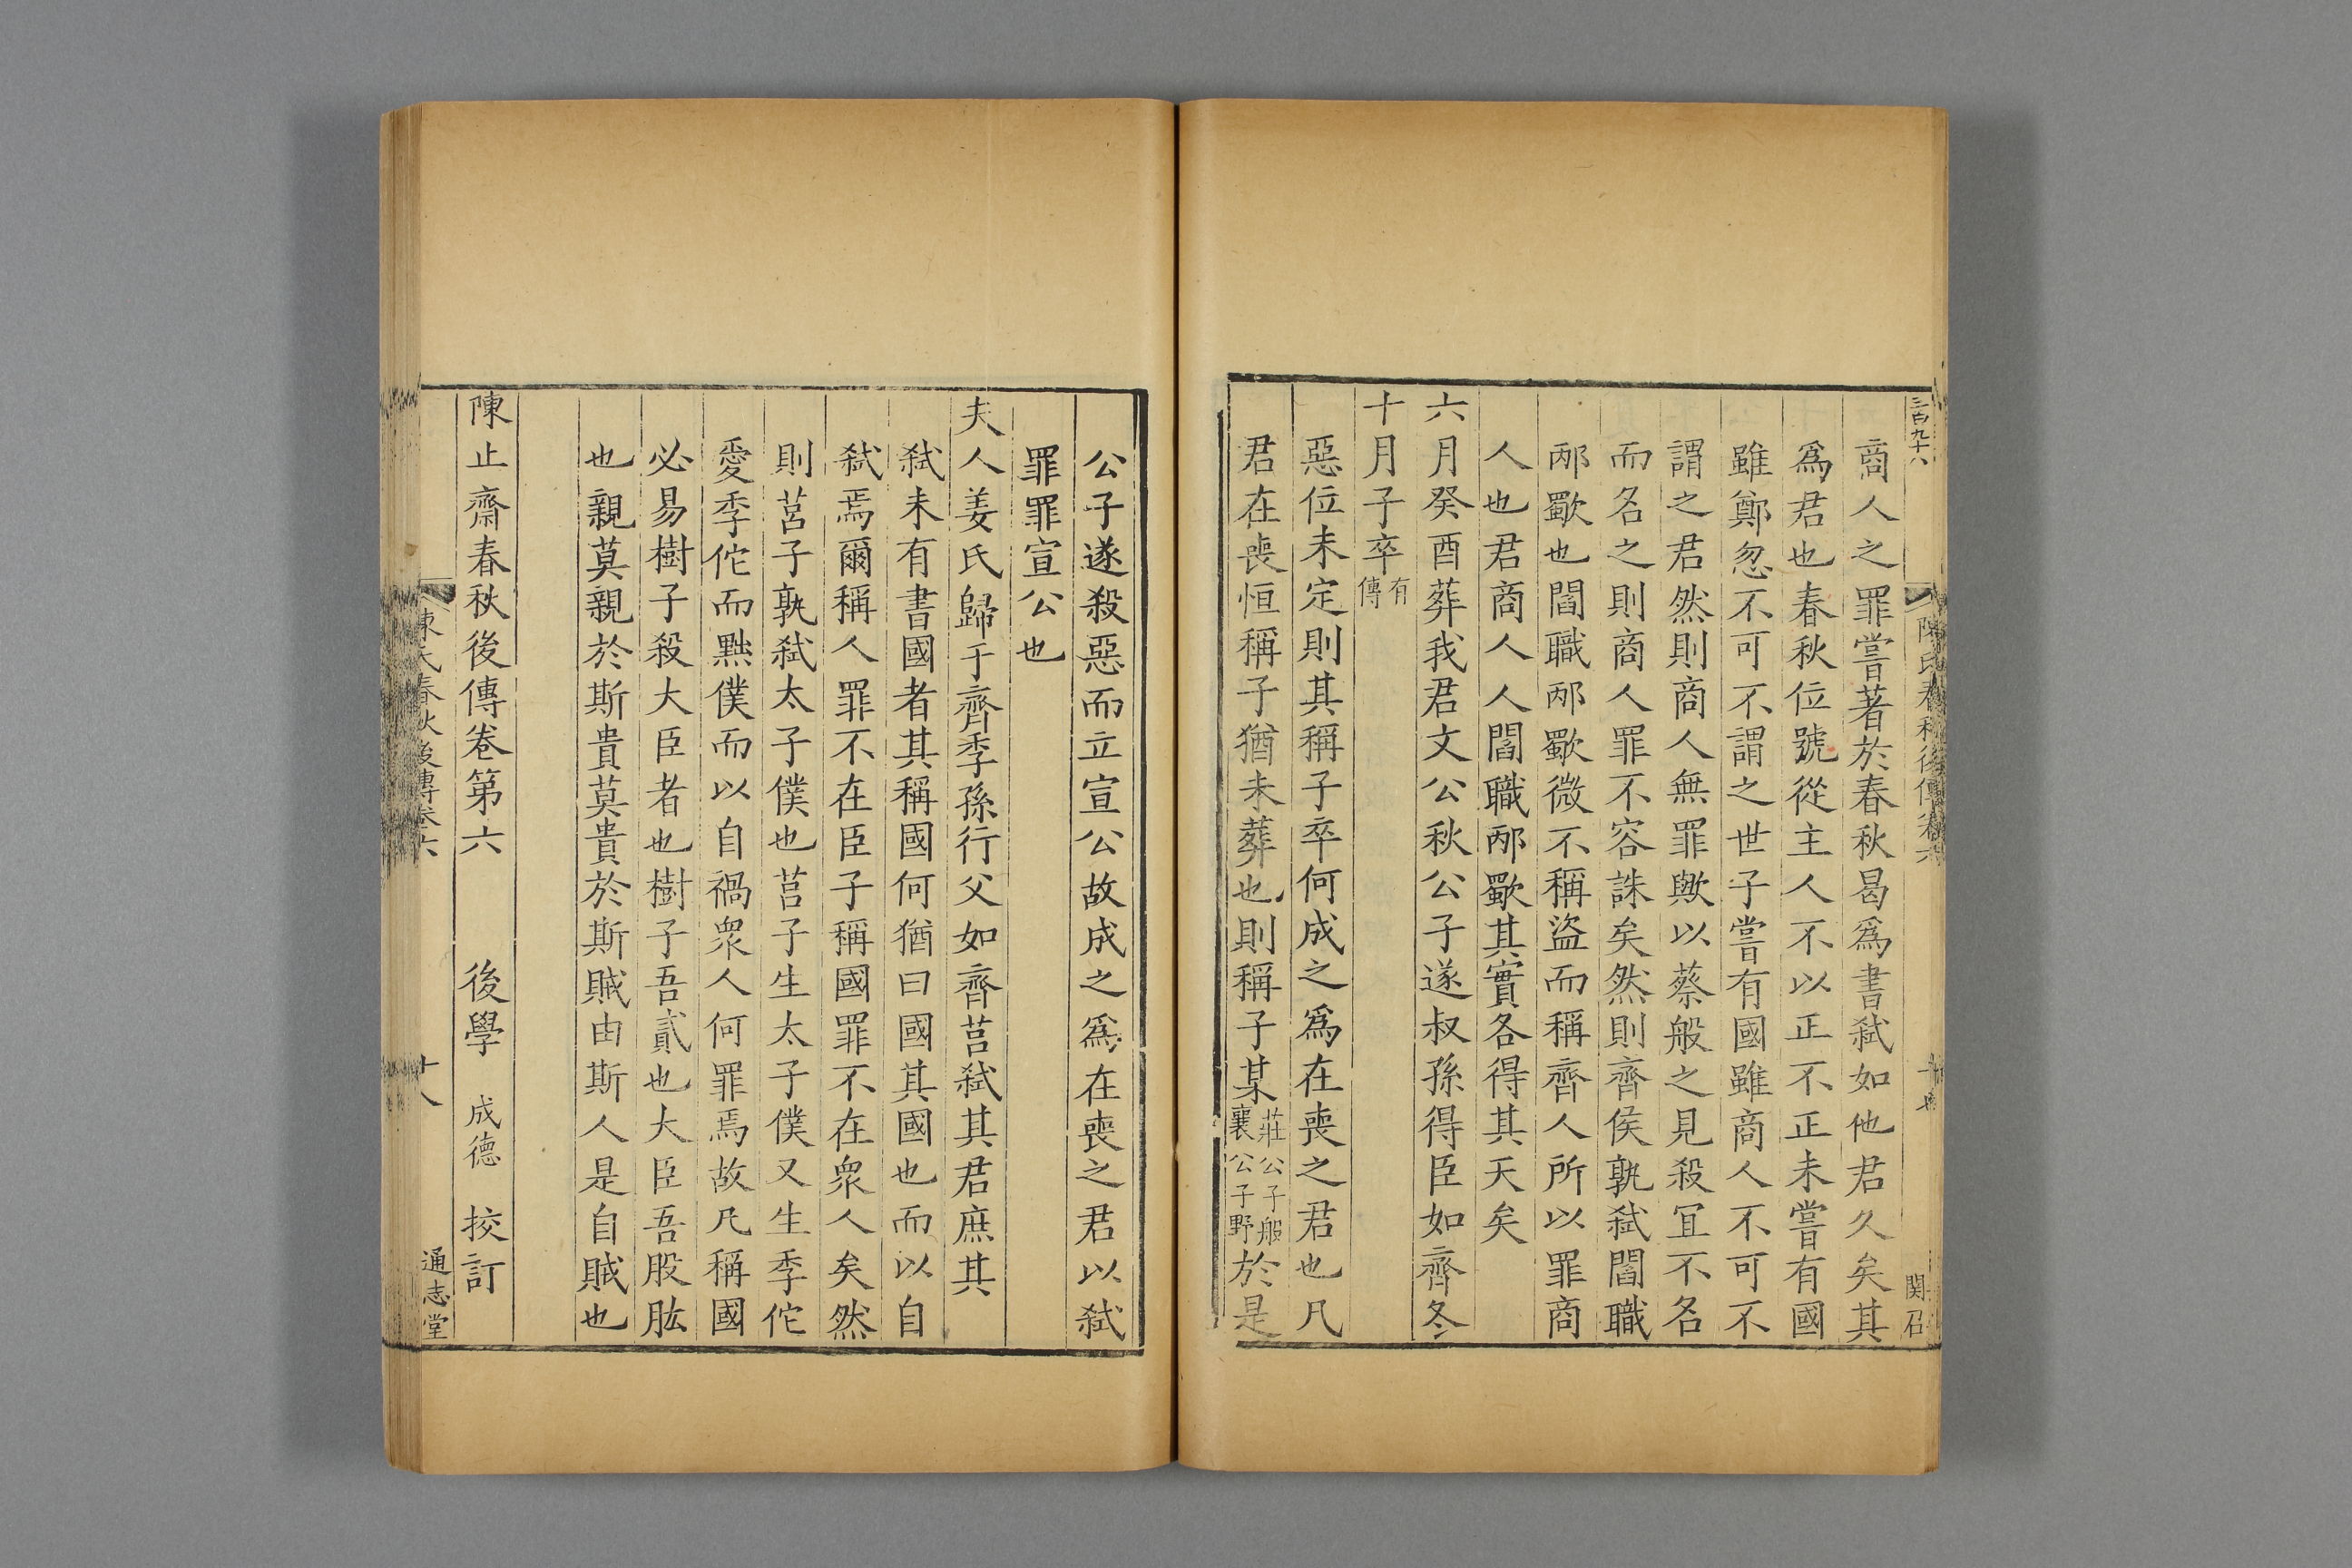 三百九十六
陳氏春秋後傳卷六
関召
商人之罪嘗著於春秋曷爲書弑如他君久矣其
爲君也春秋位號從主人不以正不正未嘗有國
雖鄭忽不可不謂之世子嘗有國雖商人不可不
謂之君然則商人無罪歟以蔡般之見殺冝不名
而名之則商人罪不容誅矣然則齊侯孰弑閻職
邴歜也閻職邴歜微不稱盜而稱齊人所以罪商
人也君商人人閻職邴歜其實各得其天矣
六月癸酉葬我君文公秋公子遂叔孫得臣如齊冬
十月子卒有傳
惡位未定則其稱子卒何成之爲在喪之君也凡
君在喪恒稱子猶未葬也則稱子某莊公子般襄公子野於是
公子遂殺惡而立宣公故成之爲在喪之君以弑
罪罪宣公也
夫人姜氏歸于齊季孫行父如齊莒弑其君庶其
弑未有書國者其稱國何猶曰國其國也而以自
弑焉爾稱人罪不在臣子稱國罪不在衆人矣然
則莒子孰弑太子僕也莒子生太子僕又生季佗
愛季佗而黜僕而以自禍衆人何罪焉故凡稱國
必易樹子殺大臣者也樹子吾貳也大臣吾股肱
也親莫親於斯貴莫貴於斯賊由斯人是自賊也
陳止齋春秋後傳卷第六　後學　成德　挍訂
陳氏春秋後傳卷六
十八
通志堂